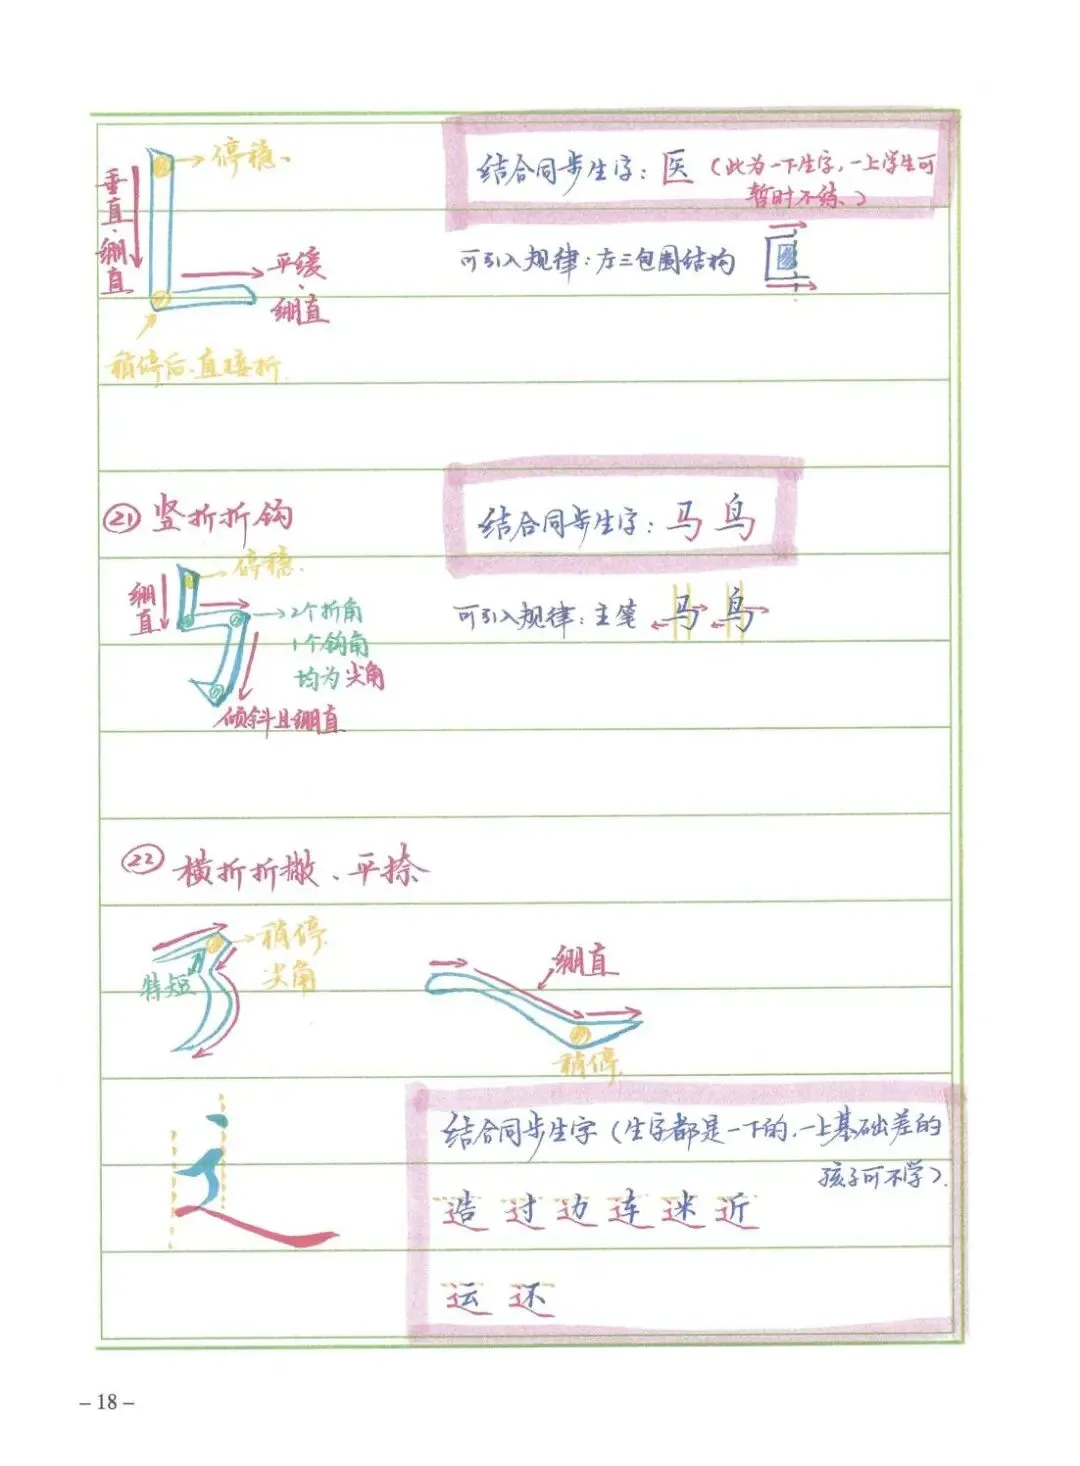 停稳、
垂直、绷直
平缓、绷直
稍停后、直接折
结合同步生字：医（此为一下生字，一上学生可
暂时不练、）
可引入规律：左三包围结构
㉑ 竖折折钩
停稳.
绷直
2个折角
1个钩角
均为尖角
倾斜且绷直
结合同步生字：马 鸟
可引入规律：主笔 马 鸟
㉒ 横折折撇、平捺
稍停
尖角
特短
绷直
稍停
结合同步生字（生字都是一下的，一上基础差的
孩子可不学）.
造 过 边 连 迷 近
运 还
– 18 –